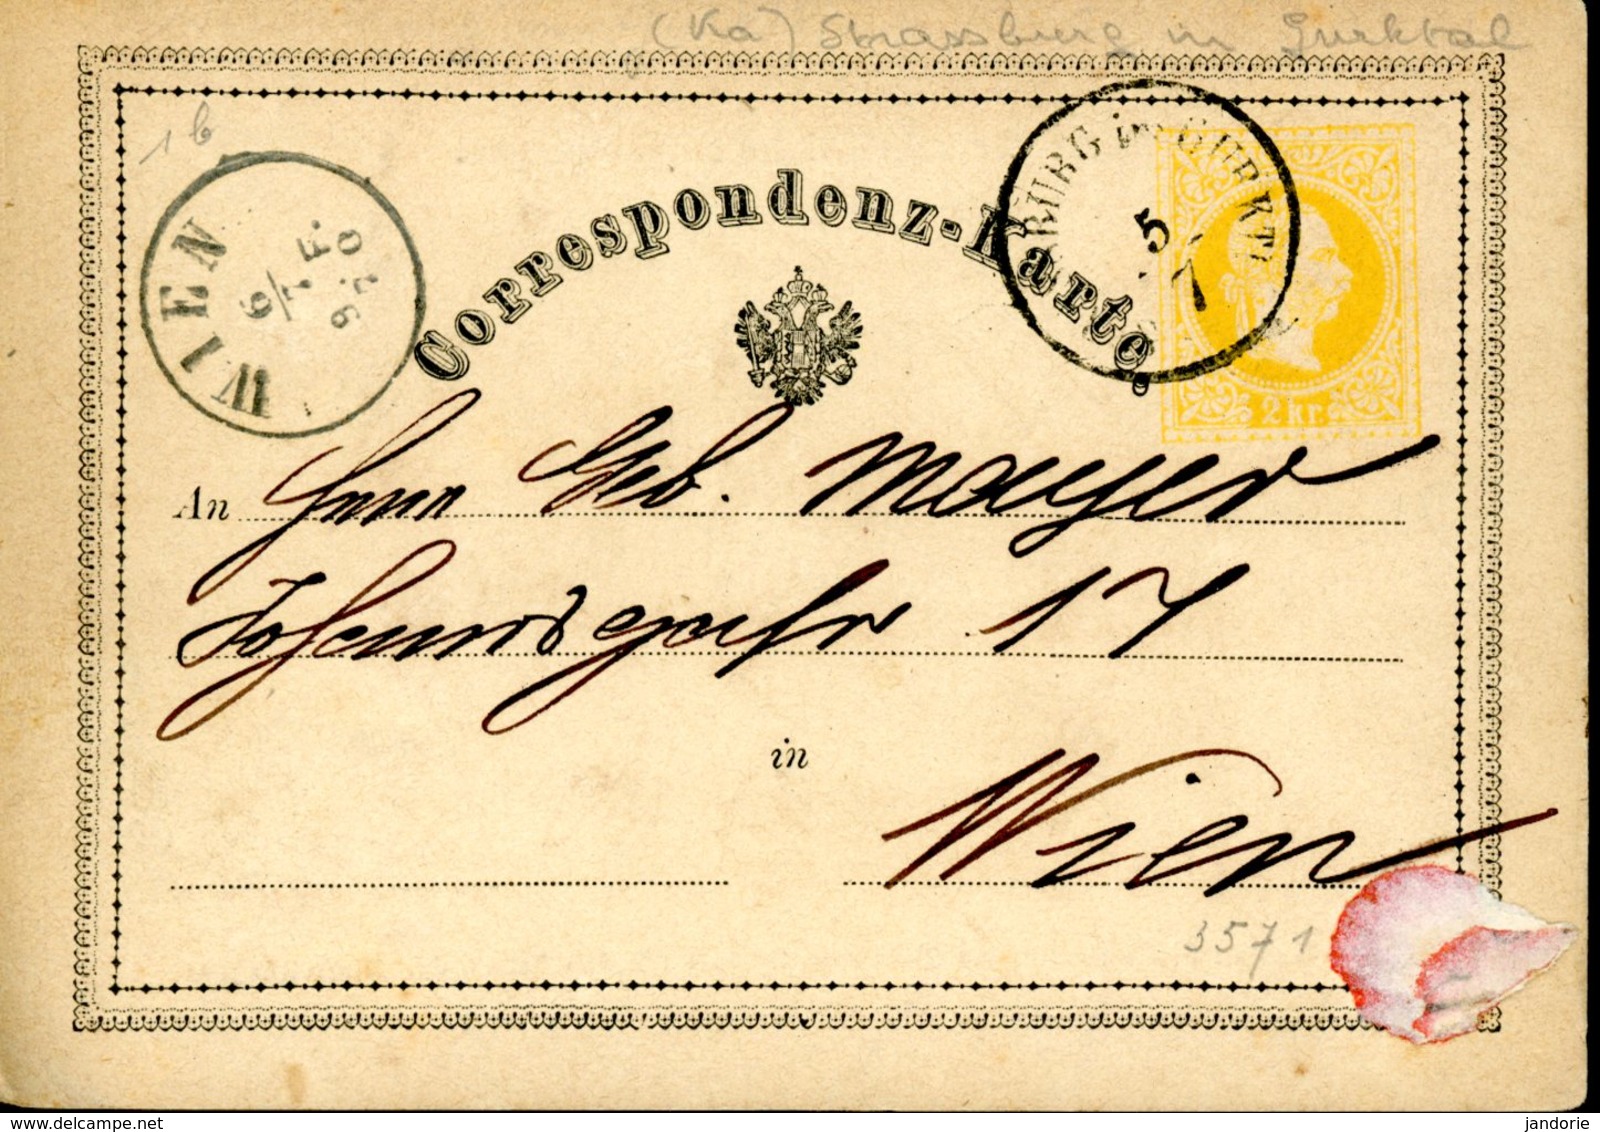 (Ka) Strassburg im Gurktal
1 b
BURG im GURKT
5
7
WIEN
6
7 F.
9
Correspondenz-Karte.
2 kr.
An Herrn Geb. Mayer
17
in
Wien
3571
delcampe.net
jandorie